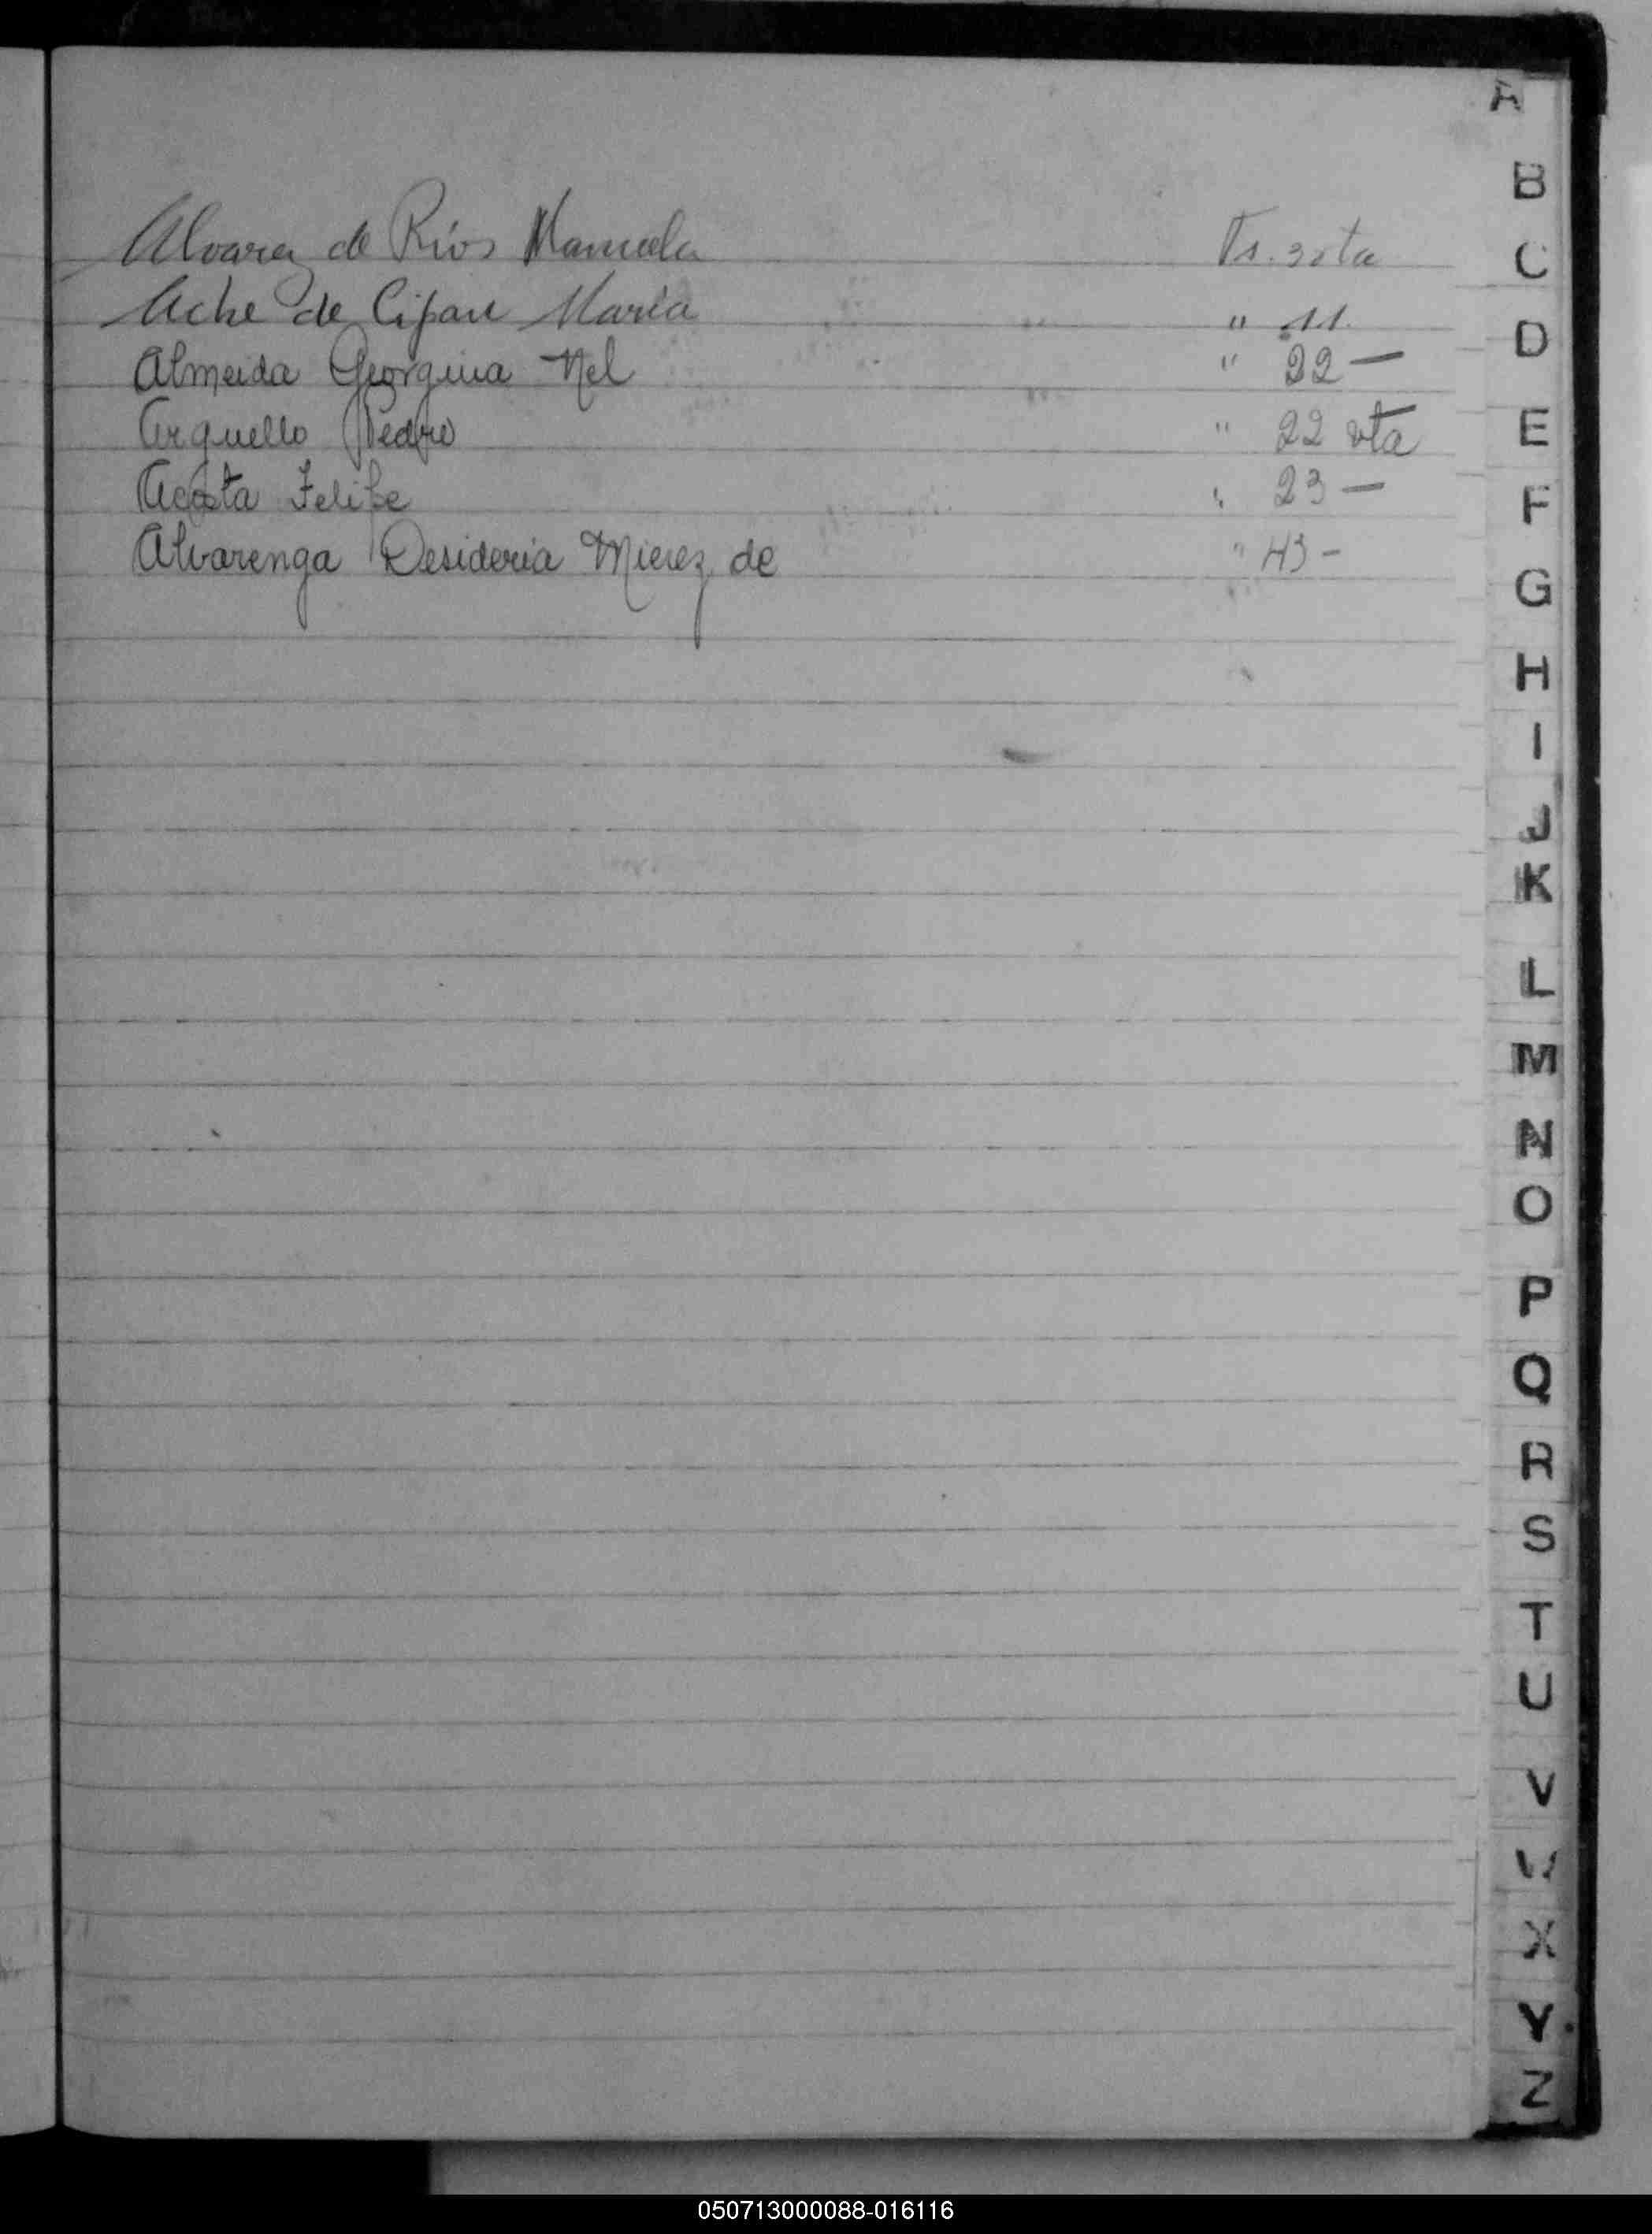 A
B
Alvarez de Ríos Manuela Fs. 3 vta
C
Ache de María " 11.
D
Almeida Georgina Nel " 22 —
Arguello Pedro " 22 vta
E
Acosta Felipe " 23 —
F
Alvarenga Desideria Mierez de " 43 -
G
H
I
J
K
L
M
N
O
P
Q
R
S
T
U
V
W
X
Y
Z
050713000088-016116